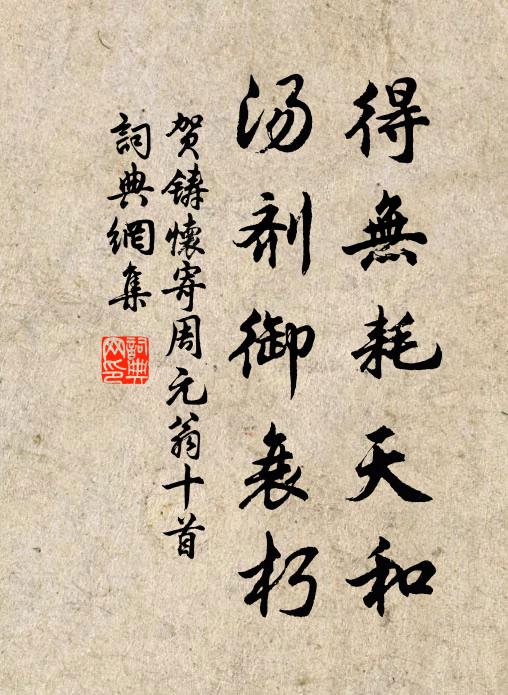 得無耗天和
汤剂御衰朽
贺鑄懷寄周元翁十首
詞典網集
詞典网印